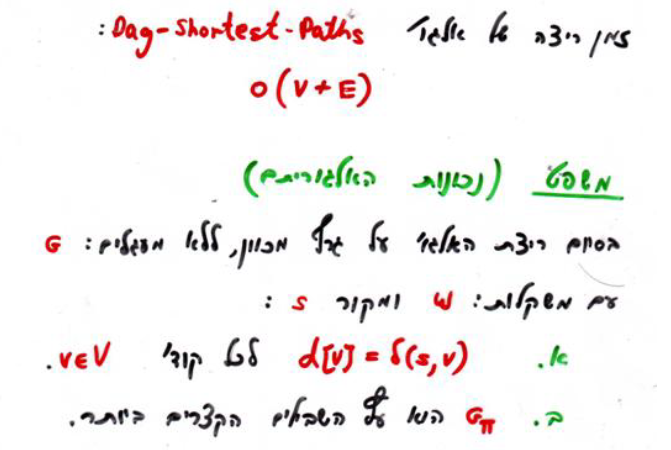 זמן ריצה של אלגו' Dag-Shortest-Paths:
O(V+E)
משפט (נכונות האלגוריתם)
בסיום ריצת האלגו' על גרף מכוון, ללא מעגלים: G
עם משקלות: w ומקור s:
א. d[v] = δ(s,v) לכל קודי' v∈V.
ב. Gπ הוא עץ השבילים הקצרים ביותר.